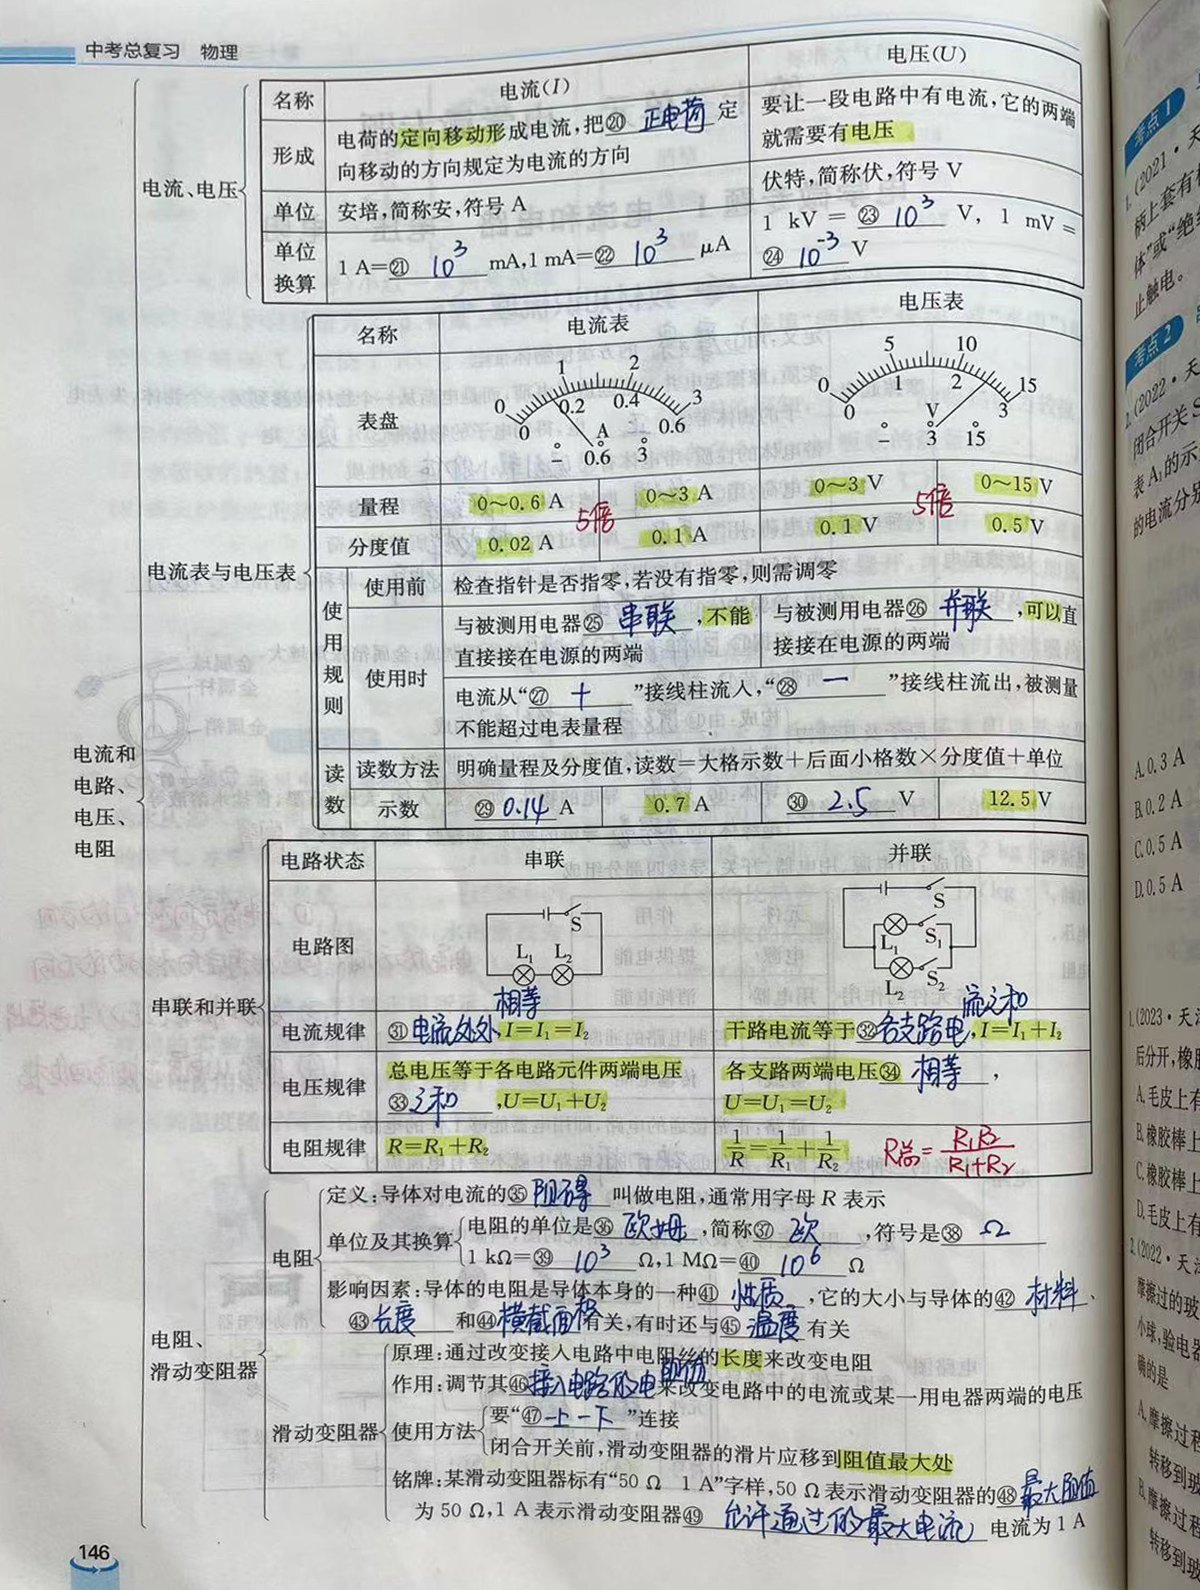 中考总复习 物理
电流和电路、电压、电阻
电流、电压
名称 电流(I) 电压(U)
形成 电荷的定向移动形成电流,把⑳ 正电荷 定向移动的方向规定为电流的方向 要让一段电路中有电流,它的两端就需要有电压
单位 安培,简称安,符号 A 伏特,简称伏,符号 V
单位换算 1 A=㉑ 10³ mA,1 mA=㉒ 10³ μA 1 kV = ㉓ 10³ V, 1 mV = ㉔ 10⁻³ V
电流表与电压表
名称 电流表 电压表
表盘
0 1 2 3
0 0.2 0.4 0.6
A
- 0.6 3
0 5 10 15
0 1 2 3
V
- 3 15
量程 0~0.6 A 0~3 A 0~3 V 0~15 V
5倍 5倍
分度值 0.02 A 0.1 A 0.1 V 0.5 V
使用规则
使用前 检查指针是否指零,若没有指零,则需调零
使用时 与被测用电器㉕ 串联 ,不能直接接在电源的两端 与被测用电器㉖ 并联 ,可以直接接在电源的两端
电流从“㉗ + ”接线柱流入,“㉘ 一 ”接线柱流出,被测量
不能超过电表量程
读数
读数方法 明确量程及分度值,读数=大格示数+后面小格数×分度值+单位
示数 ㉙ 0.14 A 0.7 A ㉚ 2.5 V 12.5 V
串联和并联
电路状态 串联 并联
电路图
S
L₁ L₂
S
L₁ S₁
L₂ S₂
电流规律 ㉛ 电流处处相等,I=I₁=I₂ 干路电流等于㉜各支路电流之和,I=I₁+I₂
电压规律 总电压等于各电路元件两端电压㉝之和,U=U₁+U₂ 各支路两端电压㉞ 相等 ,U=U₁=U₂
电阻规律 R=R₁+R₂ 1/R=1/R₁+1/R₂ R总=R₁R₂/R₁+R₂
电阻、滑动变阻器
电阻
定义:导体对电流的㉟ 阻碍 叫做电阻,通常用字母 R 表示
单位及其换算
电阻的单位是㊱ 欧姆 ,简称㊲ 欧 ,符号是㊳ Ω
1 kΩ=㊴ 10³ Ω,1 MΩ=㊵ 10⁶ Ω
影响因素:导体的电阻是导体本身的一种㊶ 性质 ,它的大小与导体的㊷ 材料 、
㊸ 长度 和㊹ 横截面积 有关,有时还与㊺ 温度 有关
滑动变阻器
原理:通过改变接入电路中电阻丝的长度来改变电阻
作用:调节其㊻接入电路的电阻值来改变电路中的电流或某一用电器两端的电压
使用方法
要“㊼一上一下”连接
闭合开关前,滑动变阻器的滑片应移到阻值最大处
铭牌:某滑动变阻器标有“50 Ω 1 A”字样,50 Ω 表示滑动变阻器的㊽最大阻值
为 50 Ω,1 A 表示滑动变阻器㊾ 允许通过的最大电流 电流为 1 A
146
考点1
(2021·天
柄上套有
体”或“绝
止触电。
考点2
2.(2022·天
闭合开关S
表A₁的示
的电流分别
A.0.3 A
B.0.2 A
C.0.5 A
D.0.5 A
1.(2023·天
后分开,橡胶
A.毛皮上有
B.橡胶棒上
C.橡胶棒上
D.毛皮上有
2.(2022·天
摩擦过的玻
小球,验电器
确的是
A.摩擦过程
转移到玻
B.摩擦过程
转移到玻